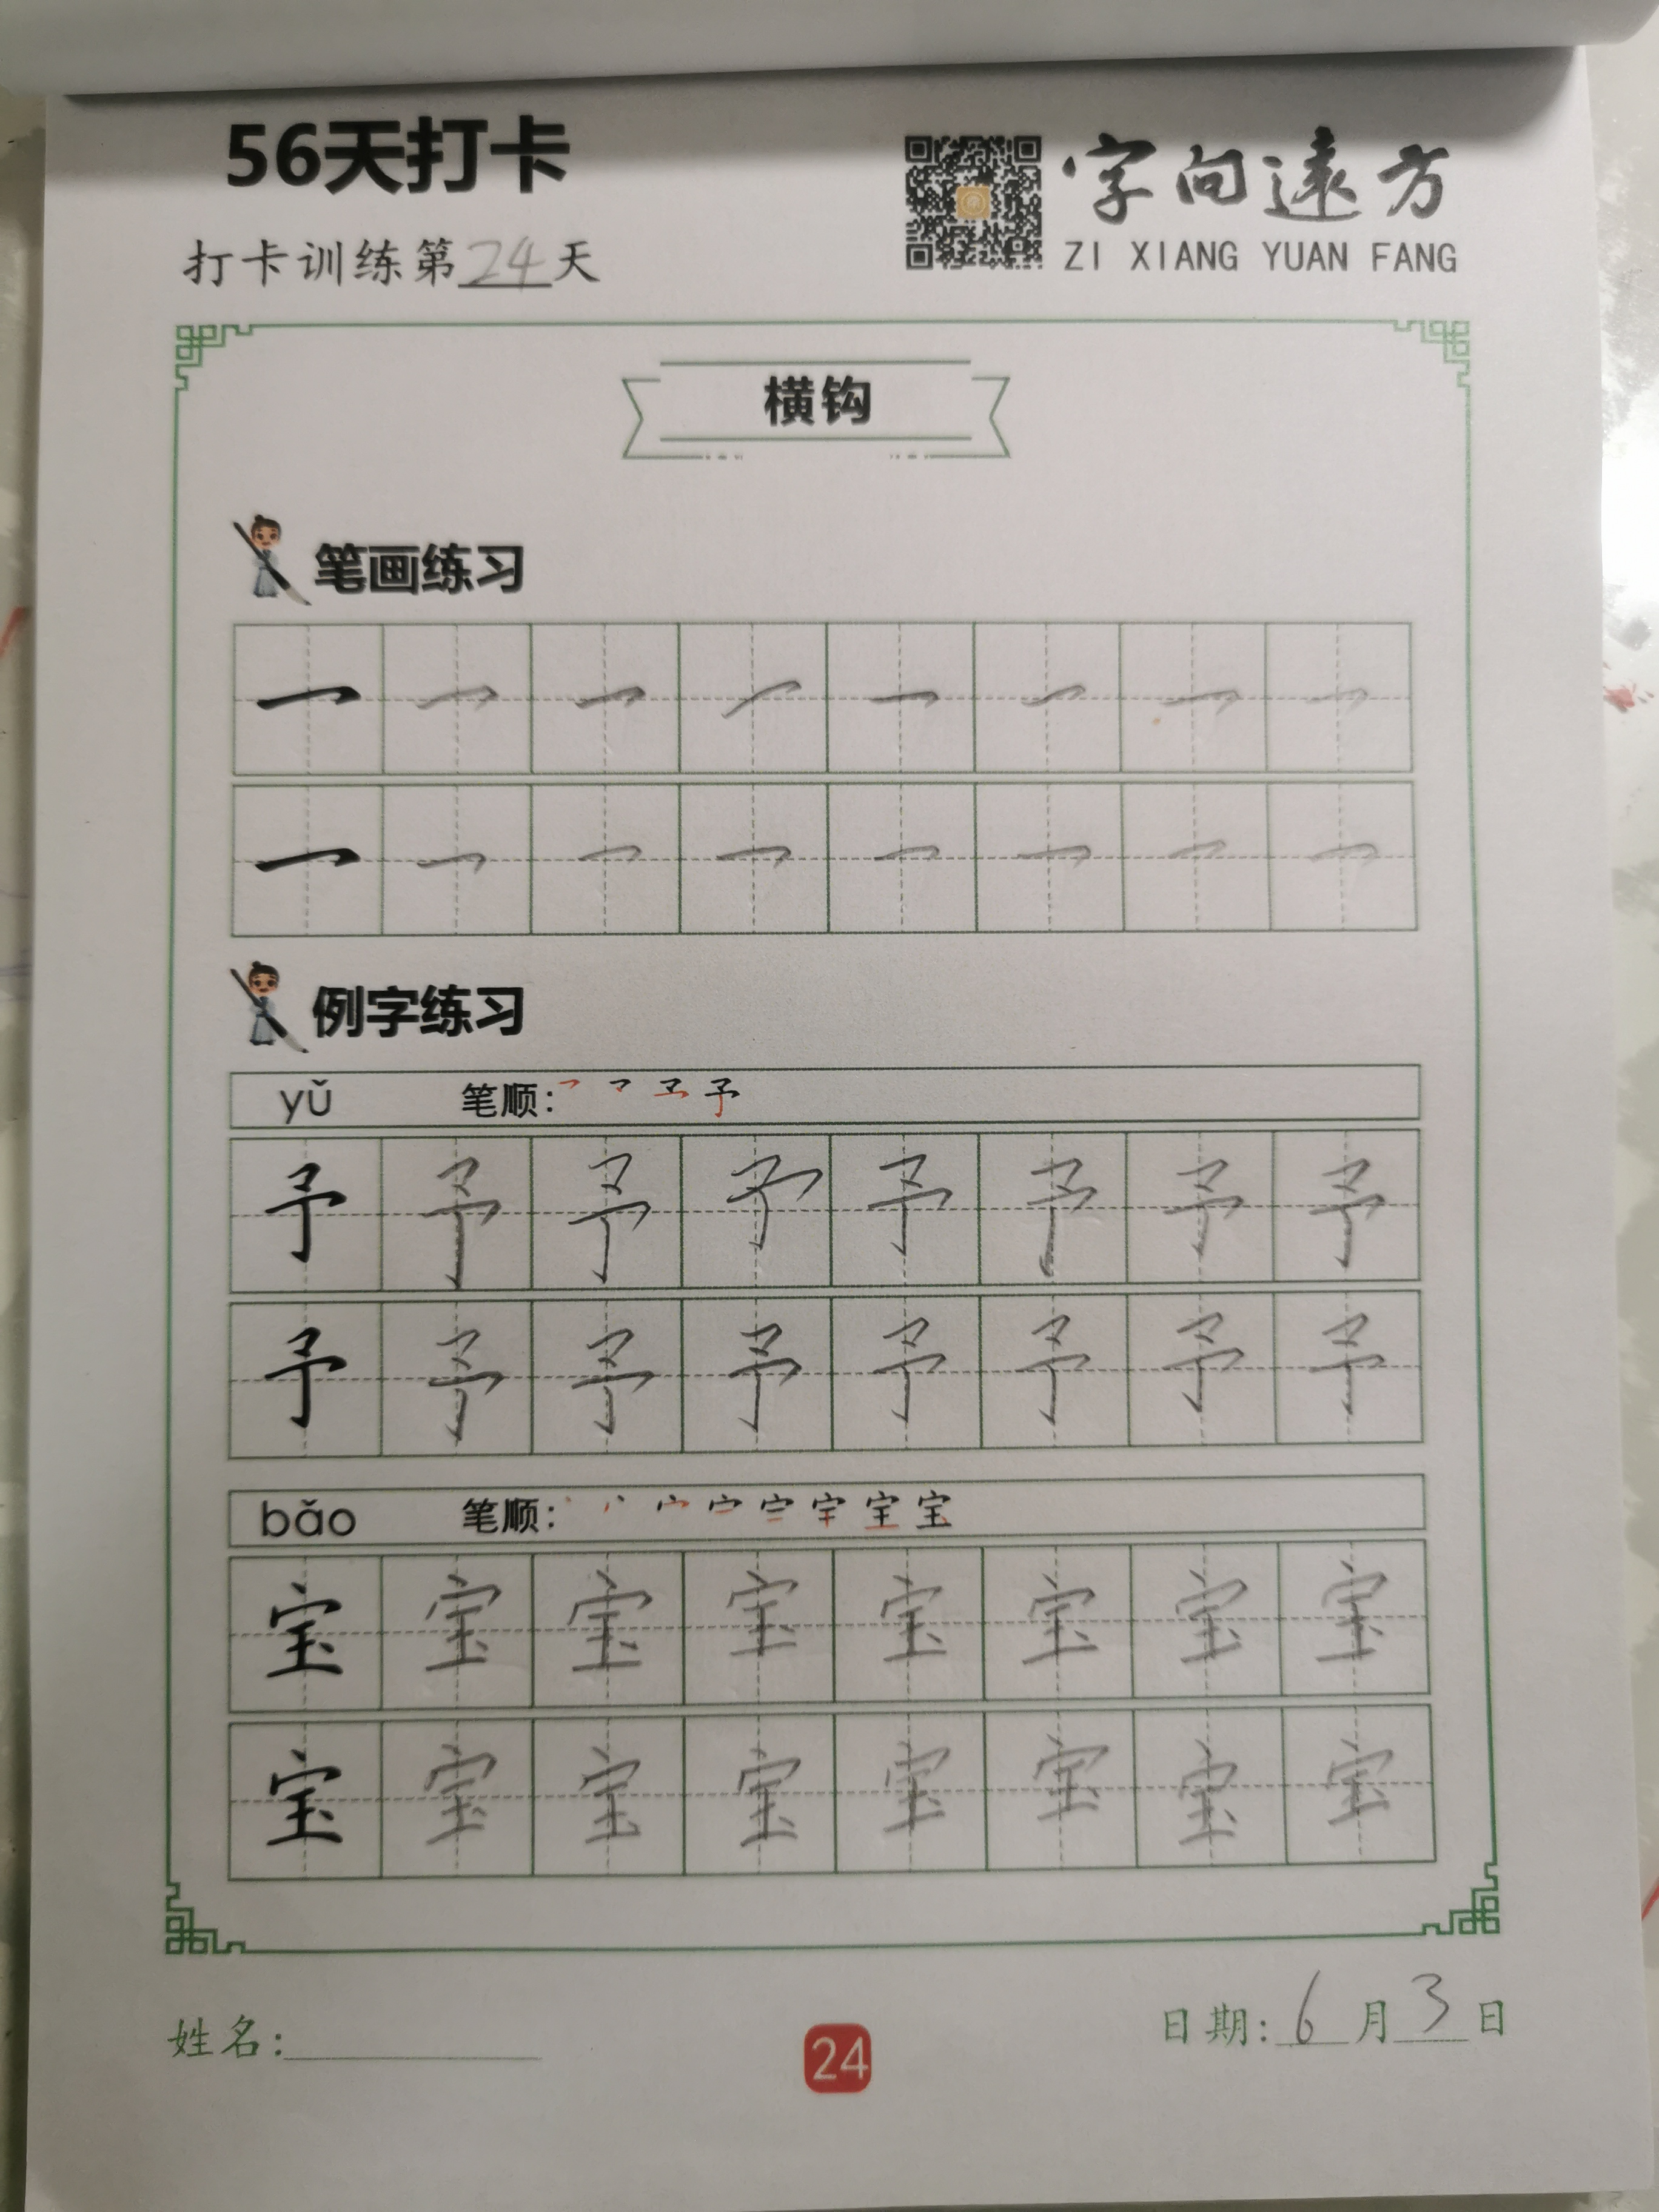 56天打卡
字向遠方
打卡训练第24天
ZI XIANG YUAN FANG
横钩
笔画练习
例字练习
yǔ 笔顺:
予 予 予 予 予 予 予 予
予 予 予 予 予 予 予 予
bǎo 笔顺:
宝 宝 宝 宝 宝 宝 宝 宝
宝 宝 宝 宝 宝 宝 宝 宝
姓名: 24 日期: 6月3日